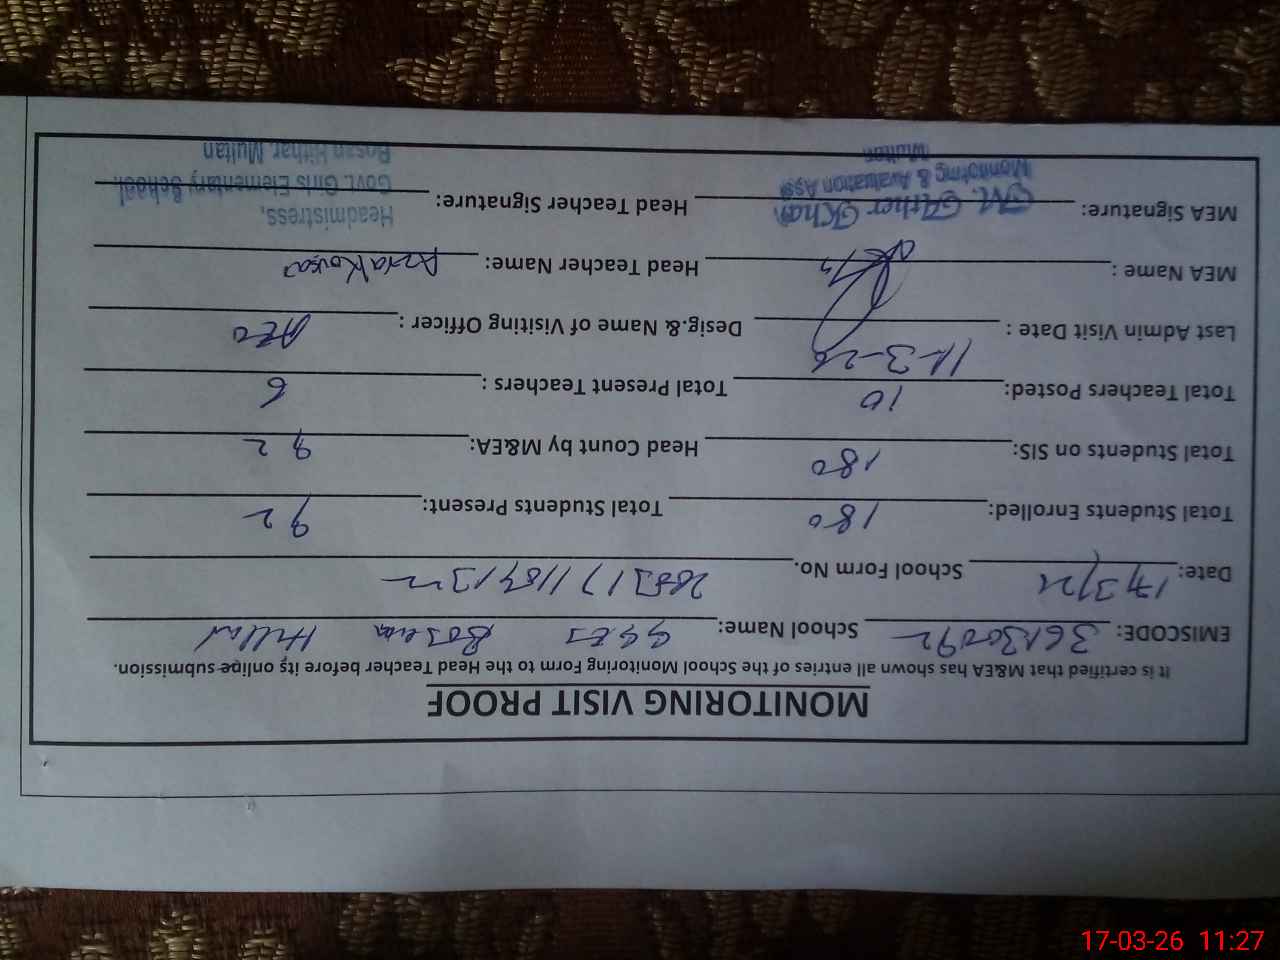 MONITORING VISIT PROOF
It is certified that M&EA has shown all entries of the School Monitoring Form to the Head Teacher before its online submission.
EMISCODE: 36130092 School Name: GGES Bosan
Date: 17/3/26 School Form No.
Total Students Enrolled: 180 Total Students Present: 92
Total Students on SIS: 180 Head Count by M&EA: 92
Total Teachers Posted: 10 Total Present Teachers : 6
Last Admin Visit Date : 11-3-26 Desig.& Name of Visiting Officer : AEO
MEA Name : Head Teacher Name: Azra Kousar
MEA Signature: M. Ather Khan Head Teacher Signature: Headmistress,
Monitoring & Avaluation Asst Govt. Girls Elementary School,
Multan Bosan Uthar, Multan
17-03-26 11:27